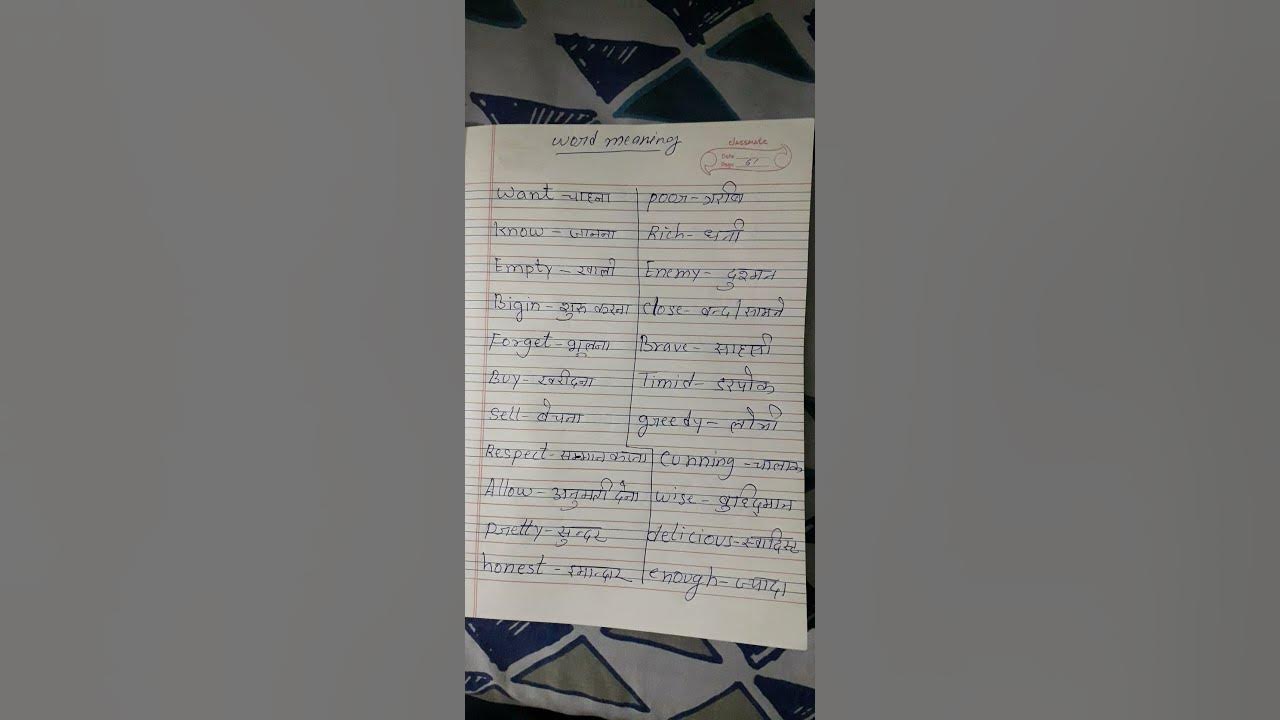 word meaning
classmate
Date
Page 61
Want - चाहना
Know - जानना
Empty - खाली
Bigin - शुरु करना
Forget - भूलना
Buy - खरीदना
Sell - बेचना
Respect - सम्मान करना
Allow - अनुमती देना
Pretty - सुन्दर
honest - इमान्दार
poor - गरीब
Rich - धनी
Enemy - दुश्मन
close - बन्द / सामने
Brave - साहसी
Timid - डरपोक
greedy - लोभी
Cunning - चालाक
wise - बुद्दिमान
delicious - स्वादिस्ट
enough - ज्यादा